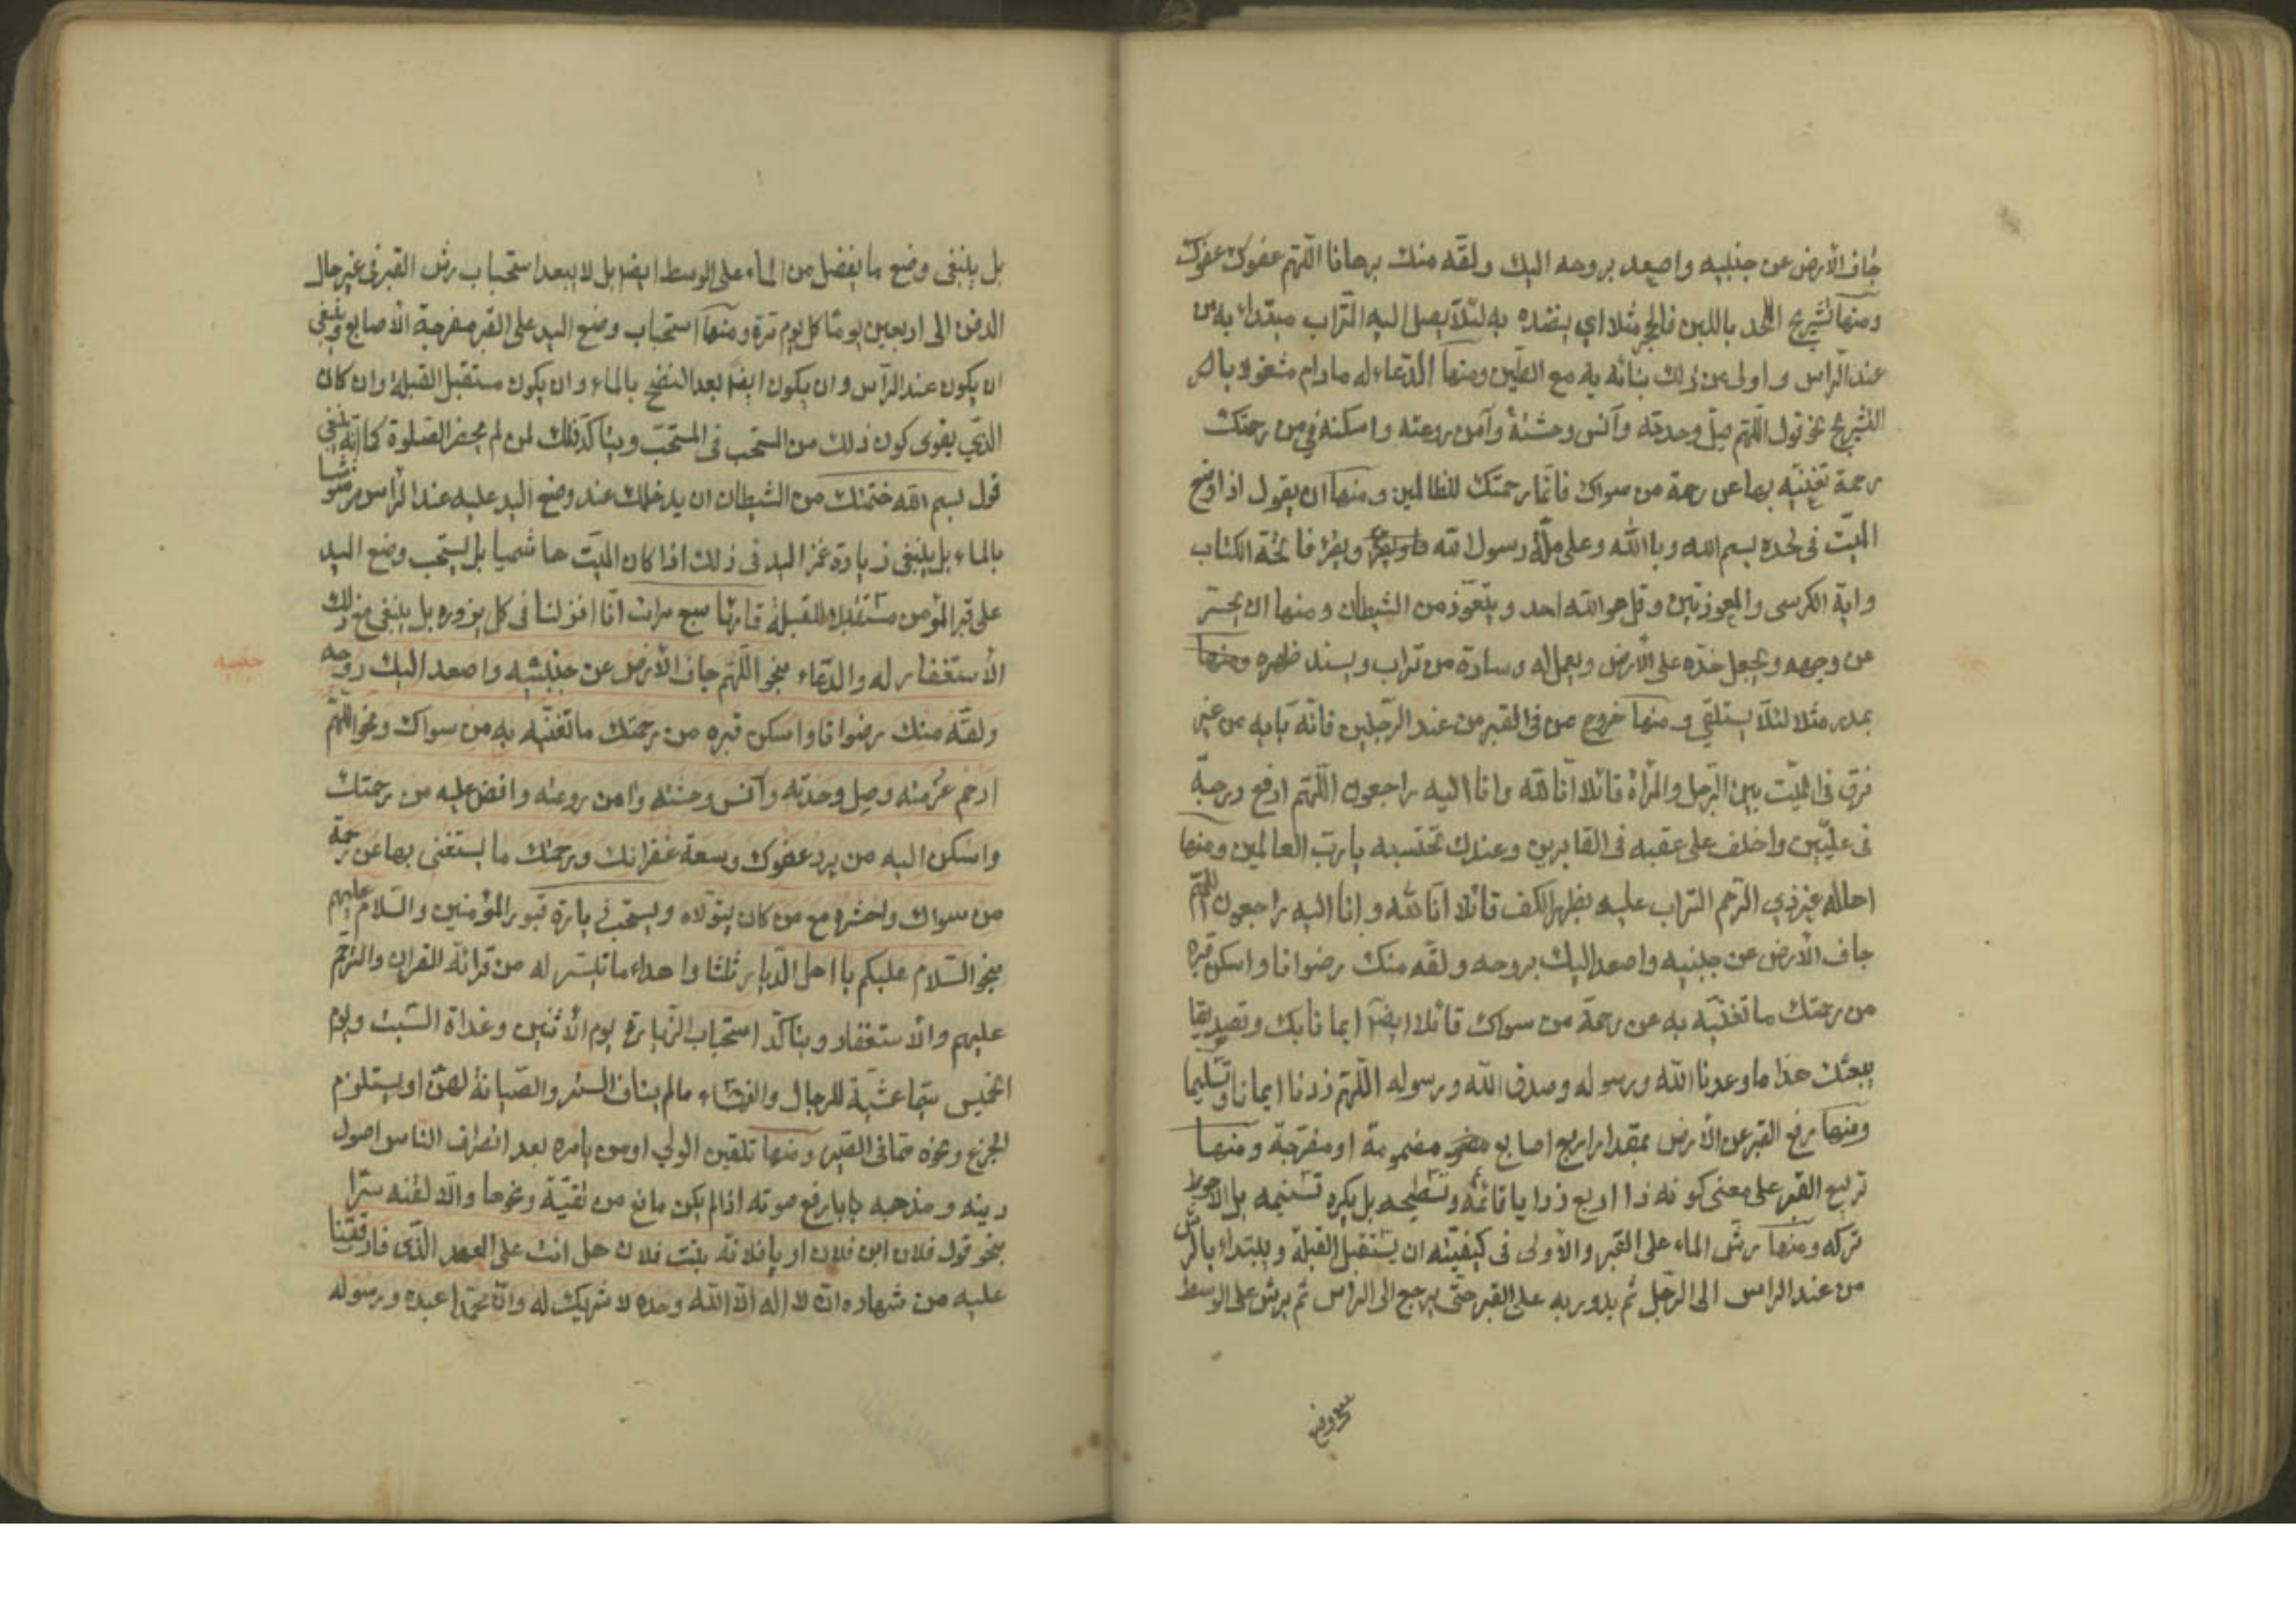 جاف الأرض عن جنبيه واصعد بروحه اليك ولقّه منك برهانا اللّهم عفوك عفوك
ومنها تشريج اللحد باللبن فالحجر مثلا اي بنضده به لئلّا يصل اليه التّراب مبتدأ به من
عند الرّاس واولى من ذلك بنائه به مع الطّين ومنها الدّعاء له مادام مشغولا بال
التشريج نحو قول اللّهم صل وحدته وآنس وحشته وآمن روعته واسكنه في من رحمتك
رحمة تغنيه بها عن رحمة من سواك فانّما رحمتك للظالمين ومنها ان يقول اذا وضع
الميّت في لحده بسم الله وبالله وعلى ملّة رسول الله ويقرء فاتحة الكتاب
واية الكرسي والمعوذتين وقل هو الله احد ويتعوّذ من الشيطان ومنها ان يحسر
عن وجهه ويجعل خدّه على الأرض ويعمل له وسادة من تراب ويسند ظهره
بمدر مثلا لئلّا يستلقي ومنها خروج من في القبر من عند الرّجلين فانّه بابه من غير
فرق في الميّت بين الرّجل والمرأة قائلا انّا لله وانا اليه راجعون اللّهم ارفع درجته
في علّيّين واخلف على عقبه في الغابرين وعندك نحتسبه يا ربّ العالمين ومنها
احاله غير ذي الرّحم التراب عليه بظهر الكف قائلا انّا لله وانا اليه راجعون اللّهم
جاف الأرض عن جنبيه واصعد اليك بروحه ولقّه منك رضوانا واسكن قبره
من رحمتك ما تغنيه به عن رحمة من سواك قائلا ايضا ايمانا بك وتصديقا
ببعثك هذا ما وعدنا الله ورسوله وصدق الله ورسوله اللّهم زدنا ايمانا وتسليما
ومنها رفع القبر عن الأرض بمقدار اربع اصابع مضمومة او مفرّجة ومنها
تربيع القبر على معنى كونه ذا اربع زوايا قائمة وتسطيحه بل يكره تسنيمه بل الأحوط
تركه ومنها رشّ الماء على القبر والأولى في كيفيّته ان يستقبل القبلة ويبتداء بالرّش
من عند الراس الى الرّجل ثم يدور به على القبر حتّى يرجع الى الراس ثم يرش على الوسط
بل ينبغى وضع ما يفضل من الماء على الوسط ايضا بل لا يبعد استحباب رش القبر في غير حال
الدفن الى اربعين يوما كل يوم مرّة ومنها استحباب وضع اليد على القبر مفرجة الأصابع وينبغي
ان يكون عند الرّأس وان يكون ايضا بعد النضح بالماء وان يكون مستقبل القبلة وان كان
الذّي يقوى كون ذلك من المستحب في المستحبّ ويتاكّد ذلك لمن لم يحضر الصلوة كما انّه ينبغي
قول بسم الله ختمتك من الشيطان ان يدخلك عند وضع اليد عليه عند الرّاس مرشوشا
بالماء بل ينبغى زيادة غمز اليد في ذلك اذا كان الميّت هاشميا بل يستحب وضع اليد
على قبر المؤمن مستقبل القبلة قارئا سبع مرات انّا انزلنا في كل يزوره بل ينبغي مع ذلك
الأستغفار له والدّعاء بنحو اللّهم جاف الأرض عن جنبيه واصعد اليك روحه
جنبيه
ولقّه منك رضوانا واسكن قبره من رحمتك ما تغنيه به من سواك ونحو اللّهم
ارحم غربته وصل وحدته وآنس وحشته وامن روعته وافض عليه من رحمتك
واسكن اليه من برد عفوك وسعة غفرانك ورحمتك ما يستغنى بها عن رحمة
من سواك واحشره مع من كان يتولاه ويستحبّ زيارة قبور المؤمنين والسّلام عليهم
بنحو السّلام عليكم يا اهل الدّيار ثلثا واهداء ما تيسّر له من قرائة القران والترحّم
عليهم والأستغفار ويتاكّد استحباب الزّيارة يوم الأثنين وغداة السّبت ويوم
الخميس سيّما عشيّة للرجال والنّساء ما لم يناف الستر والصّيانة لهنّ او يستلزم
الجزع ونحوه ومنها تلقين الولي او من يامره بعد انصراف الناس اصول
دينه ومذهبه بارفع صوته اذا لم يكن مانع من تقيّة ونحوها والّا لقّنه سرّا
بنحو قول فلان ابن فلان او يا فلانة بنت فلان هل انت على العهد الذّي فارقتنا
عليه من شهادة ان لا اله الّا الله وحده لا شريك له وانّ محمّدا عبده ورسوله